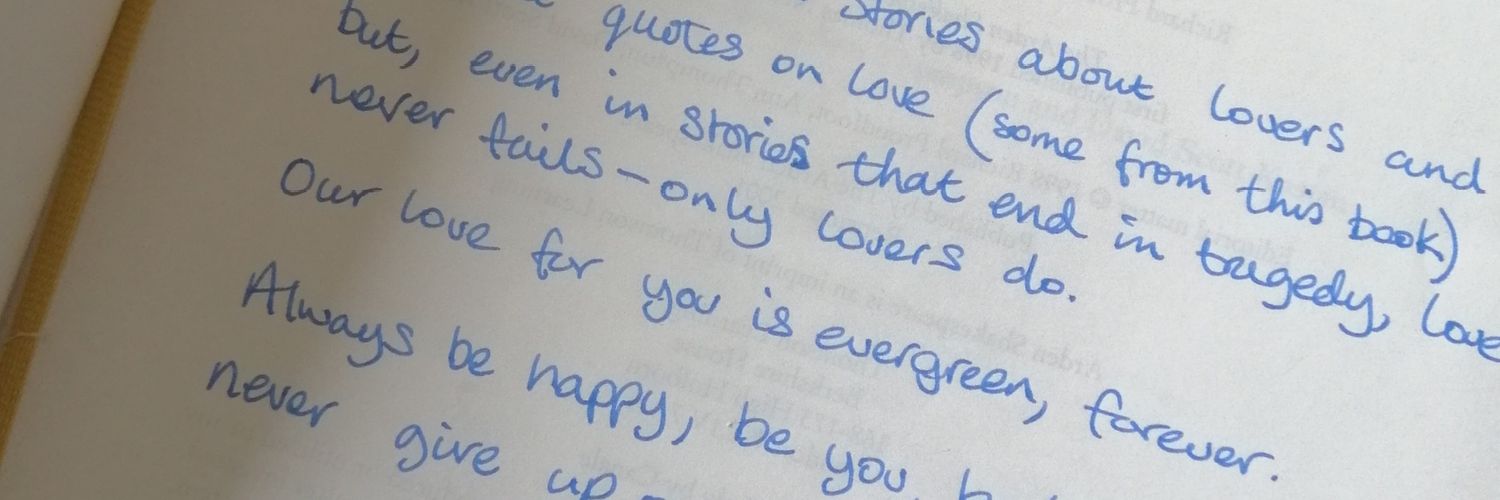 stories about lovers and
quotes on love (some from this book)
but, even in stories that end in tragedy, love
never fails - only lovers do.
Our love for you is evergreen, forever.
Always be happy, be you,
never give up -